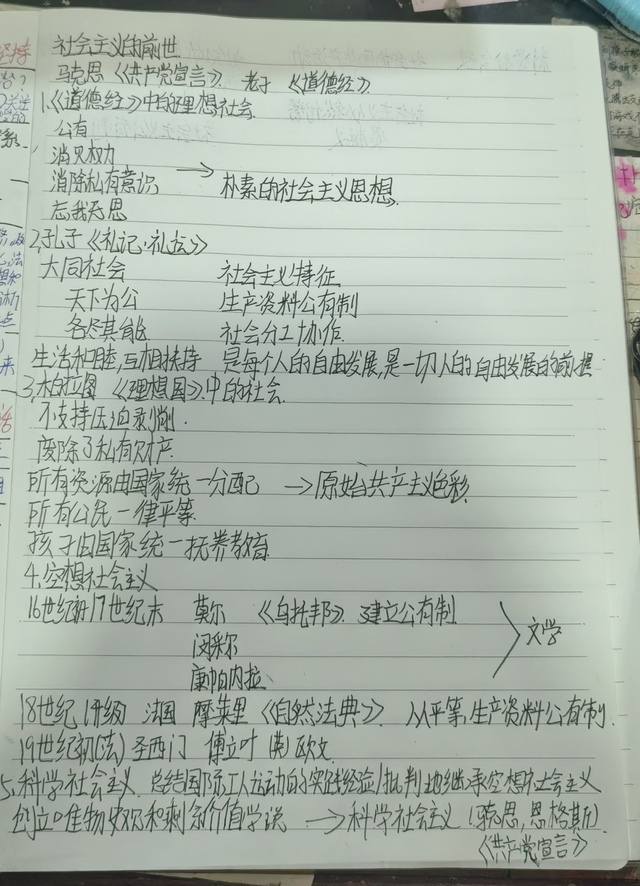 社会主义的前世
马克思《共产党宣言》 老子《道德经》
1.《道德经》中的理想社会
公有
消灭权力
消除私有意识 → 朴素的社会主义思想
忘我无思
2.孔子《礼记·礼运》
大同社会 社会主义特征
天下为公 生产资料公有制
各尽其能 社会分工协作
生活和睦,互相扶持 是每个人的自由发展,是一切人的自由发展的前提
3.柏拉图《理想国》中的社会
不支持压迫剥削
废除了私有财产
所有资源由国家统一分配 → 原始共产主义色彩
所有公民一律平等
孩子由国家统一抚养教育
4.空想社会主义
16世纪初17世纪末 莫尔《乌托邦》建立公有制
闵采尔 文学
康帕内拉
18世纪 法国 摩莱里《自然法典》 从平等,生产资料公有制
19世纪初(法)圣西门 傅立叶 (英)欧文
5.科学社会主义 总结国际工人运动的实践经验/批判地继承空想社会主义
创立唯物史观和剩余价值学说 → 科学社会主义(马克思,恩格斯)
《共产党宣言》